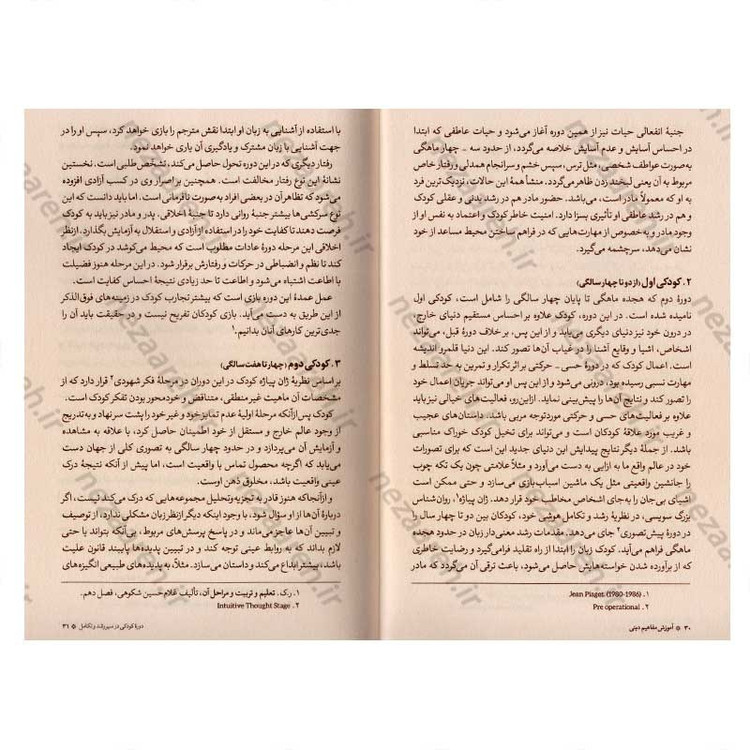 جنبهٔ انفعالی حیات نیز از همین دوره آغاز می‌شود و حیات عاطفی که ابتدا
در احساس آسایش و عدم آسایش خلاصه می‌گردد، از حدود سه - چهار ماهگی
به‌صورت عواطف شخصی، مثل ترس، سپس خشم و سرانجام همدلی و رفتار خاص
مربوط به آن یعنی لبخند زدن ظاهر می‌گردد. منشأ همهٔ این حالات، نزدیک‌ترین فرد
به او که معمولاً مادر است، می‌باشد. حضور مادر هم در رشد بدنی و عقلی کودک
و هم در رشد عاطفی او تأثیر بسزا دارد. امنیت خاطر کودک و اعتماد به نفس او از
وجود مادر و به‌خصوص از مهارت‌هایی که در فراهم ساختن محیط مساعد از خود
نشان می‌دهد، سرچشمه می‌گیرد.
۲. کودکی اول (از دو تا چهار سالگی)
دورهٔ دوم که هجده ماهگی تا پایان چهار سالگی را شامل است، کودکی اول
نامیده شده است. در این دوره، کودک علاوه بر احساس مستقیم دنیای خارج،
در درون خود نیز دنیای دیگری می‌یابد و از این پس، برخلاف دورهٔ قبل، می‌تواند
اشخاص، اشیا و وقایع آشنا را در غیاب آن‌ها تصور کند. این دنیا قلمرو اندیشه
است. اعمال کودک که در دورهٔ حسی - حرکتی بر اثر تکرار و تمرین به حد تسلط و
مهارت نسبی رسیده بود، درونی می‌شود و از این پس او می‌تواند جریان اعمال خود
را تصور کند و نتایج آن‌ها را پیش‌بینی نماید. ازاین‌رو، فعالیت‌های خیالی نیز باید
علاوه بر فعالیت‌های حسی و حرکتی مورد توجه مربی باشد. داستان‌های عجیب
و غریب مورد علاقهٔ کودکان است و می‌تواند برای تخیل کودک خوراک مناسبی
باشد. از جملهٔ دیگر نتایج پیدایش این دنیای جدید این است که برای تصورات
خود در عالم واقع ما به ازایی به دست می‌آورد و مثلاً علامتی چون یک تکه چوب
را جانشین واقعیتی مثل یک ماشین اسباب‌بازی می‌سازد و حتی ممکن است
اشیای بی‌جان را به‌جای اشخاص مخاطب خود قرار دهد. ژان پیاژه۱، روان‌شناس
بزرگ سویسی، در نظریهٔ رشد و تکامل هوشی خود، کودکان بین دو تا چهار سال را
در دورهٔ پیش‌تصوری۲ جای می‌دهد. مقدمات رشد معنی‌دار زبان در حدود هجده
ماهگی فراهم می‌آید. کودک زبان را ابتدا از راه تقلید فرامی‌گیرد و رضایت خاطری
که از برآورده شدن خواسته‌هایش حاصل می‌شود، باعث ترقی آن می‌گردد، که مادر
۱. Jean Piaget (1980-1986)
۲. Pre operational
۳۰ ※ آموزش مفاهیم دینی
با استفاده از آشنایی به زبان او ابتدا نقش مترجم را بازی خواهد کرد، سپس او را در
جهت آشنایی با زبان مشترک و یادگیری آن یاری خواهد نمود.
رفتار دیگری که در این دوره تحول حاصل می‌کند، تشخّص طلبی است. نخستین
نشانهٔ این نوع رفتار مخالفت است. همچنین بر اصرار وی در کسب آزادی افزوده
می‌شود که تظاهر آن در بعضی افراد به‌صورت نافرمانی است. اما باید دانست که این
نوع سرکشی‌ها بیشتر جنبهٔ روانی دارد تا جنبهٔ اخلاقی. پدر و مادر نیز باید به کودک
فرصت دهند تا کفایت خود را در استفاده از آزادی و استقلال به آزمایش بگذارد. از نظر
اخلاقی این مرحله دورهٔ عادات مطلوب است که محیط می‌کوشد در کودک ایجاد
کند تا نظم و انضباطی در حرکات و رفتارش برقرار شود. در این مرحله هنوز فضیلت
با اطاعت اشتباه می‌شود و اطاعت تا حد زیادی نتیجهٔ احساس کفایت است.
عمل عمدهٔ این دوره بازی است که بیشتر تجارب کودک در زمینه‌های فوق‌الذکر
از این طریق به دست می‌آید. بازی کودکان تفریح نیست و در حقیقت باید آن را
جدی‌ترین کارهای آنان بدانیم.۱
۳. کودکی دوم (چهار تا هفت سالگی)
بر اساس نظریهٔ ژان پیاژه کودک در این دوران در مرحلهٔ فکر شهودی۲ قرار دارد که از
مشخصات آن ماهیت غیرمنطقی، متناقض و خودمحور بودن تفکر کودک است.
کودک پس از آنکه مرحلهٔ اولیهٔ عدم تمایز خود و غیر خود را پشت سر نهاد و به‌تدریج
از وجود عالم خارج و مستقل از خود اطمینان حاصل کرد، با علاقه به مشاهده
و آزمایش آن می‌پردازد و در حدود چهار سالگی به تصوری کلی از جهان دست
می‌یابد که اگرچه محصول تماس با واقعیت است، اما پیش از آنکه نتیجهٔ درک
عینی واقعیت باشد، مخلوق ذهن اوست.
و ازآنجاکه هنوز قادر به تجزیه و تحلیل مجموعه‌هایی که درک می‌کند نیست، اگر
دربارهٔ آن‌ها از او سؤال شود، با وجود اینکه دیگر از نظر زبان مشکلی ندارد، از توصیف
و تبیین آن‌ها عاجز می‌ماند و در پاسخ پرسش‌های مربوط، بی‌آنکه بتواند یا حتی
لازم بداند که به روابط عینی توجه کند و در تبیین پدیده‌ها پایبند قانون علیت
باشد، بیشتر ابداع می‌کند و داستان می‌سازد. مثلاً، به پدیده‌های طبیعی انگیزه‌های
۱. ر.ک. تعلیم و تربیت و مراحل آن، تألیف غلامحسین شکوهی، فصل دهم.
۲. Intuitive Thought Stage
دورهٔ کودکی در سیر رشد و تکامل ※ ۳۱
nezaareh.ir